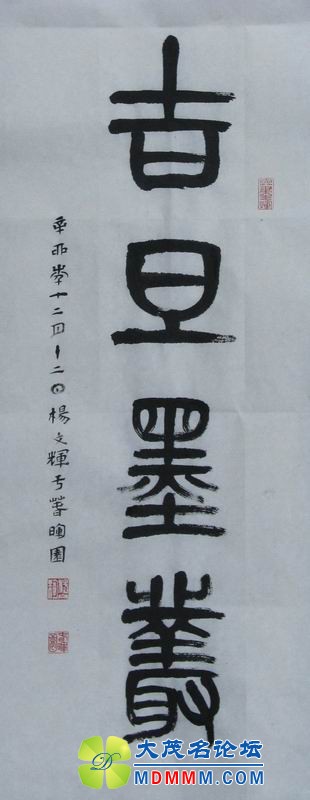 吉旦墨叢
辛卯十二月十二日楊文輝于晦園
大茂名论坛
MDMMM.COM